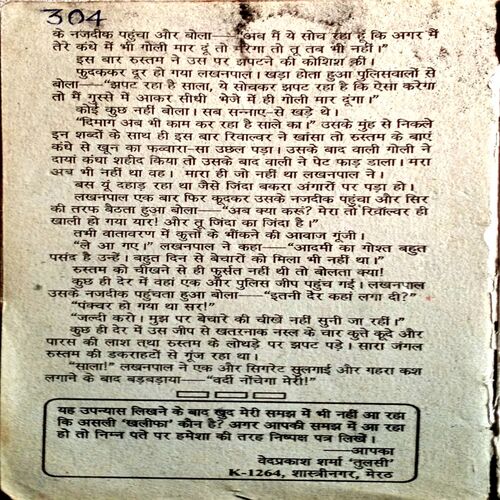 304
के नजदीक पहुंचा और बोला—“अब मैं ये सोच रहा हूं कि अगर मैं
तेरे कंधे में भी गोली मार दूं तो मरेगा तो तू तब भी नहीं।”
इस बार रुस्तम ने उस पर झपटने की कोशिश की।
फुदककर दूर हो गया लखनपाल। खड़ा होता हुआ पुलिसवालों से
बोला—“झपट रहा है साला, ये सोचकर झपट रहा है कि ऐसा करेगा
तो मैं गुस्से में आकर सीधी भेजे में ही गोली मार दूंगा।”
कोई कुछ नहीं बोला। सब सन्नाए-से खड़े थे।
“दिमाग अब भी काम कर रहा है साले का।” उसके मुंह से निकले
इन शब्दों के साथ ही इस बार रिवाल्वर ने खांसा तो रुस्तम के बाएं
कंधे से खून का फव्वारा-सा उछल पड़ा। उसके बाद वाली गोली ने
दायां कंधा शहीद किया तो उसके बाद वाली ने पेट फाड़ डाला। मरा
अब भी नहीं था वह। मारा ही जो नहीं था लखनपाल ने।
बस यूं दहाड़ रहा था जैसे जिंदा बकरा अंगारों पर पड़ा हो।
लखनपाल एक बार फिर कूदकर उसके नजदीक पहुंचा और सिर
की तरफ बैठता हुआ बोला—“अब क्या करूं? मेरा तो रिवॉल्वर ही
खाली हो गया यार! और तू जिंदा का जिंदा है।”
तभी वातावरण में कुत्तों के भौंकने की आवाज गूंजी।
“ले आ गए।” लखनपाल ने कहा—“आदमी का गोश्त बहुत
पसंद है उन्हें। बहुत दिन से बेचारों को मिला भी नहीं था।”
रुस्तम को चीखने से ही फुर्सत नहीं थी तो बोलता क्या!
कुछ ही देर में वहां एक और पुलिस जीप पहुंच गई। लखनपाल
उसके नजदीक पहुंचता हुआ बोला—“इतनी देर कहां लगा दी?”
“पंक्चर हो गया था सर!”
“जल्दी करो। मुझ पर बेचारे की चीखें नहीं सुनी जा रहीं।”
कुछ ही देर में उस जीप से खतरनाक नस्ल के चार कुत्ते कूदे और
पारस की लाश तथा रुस्तम के लोथड़े पर झपट पड़े। सारा जंगल
रुस्तम की डकराहटों से गूंज रहा था।
“साला!” लखनपाल ने एक और सिगरेट सुलगाई और गहरा कश
लगाने के बाद बड़बड़ाया—“वर्दी नोंचेगा मेरी!”
यह उपन्यास लिखने के बाद खुद मेरी समझ में भी नहीं आ रहा
कि असली ‘खलीफा’ कौन है? अगर आपकी समझ में आ रहा
हो तो निम्न पते पर हमेशा की तरह निष्पक्ष पत्र लिखें।
—आपका
वेदप्रकाश शर्मा ‘तुलसी’
K-1264, शास्त्रीनगर, मेरठ